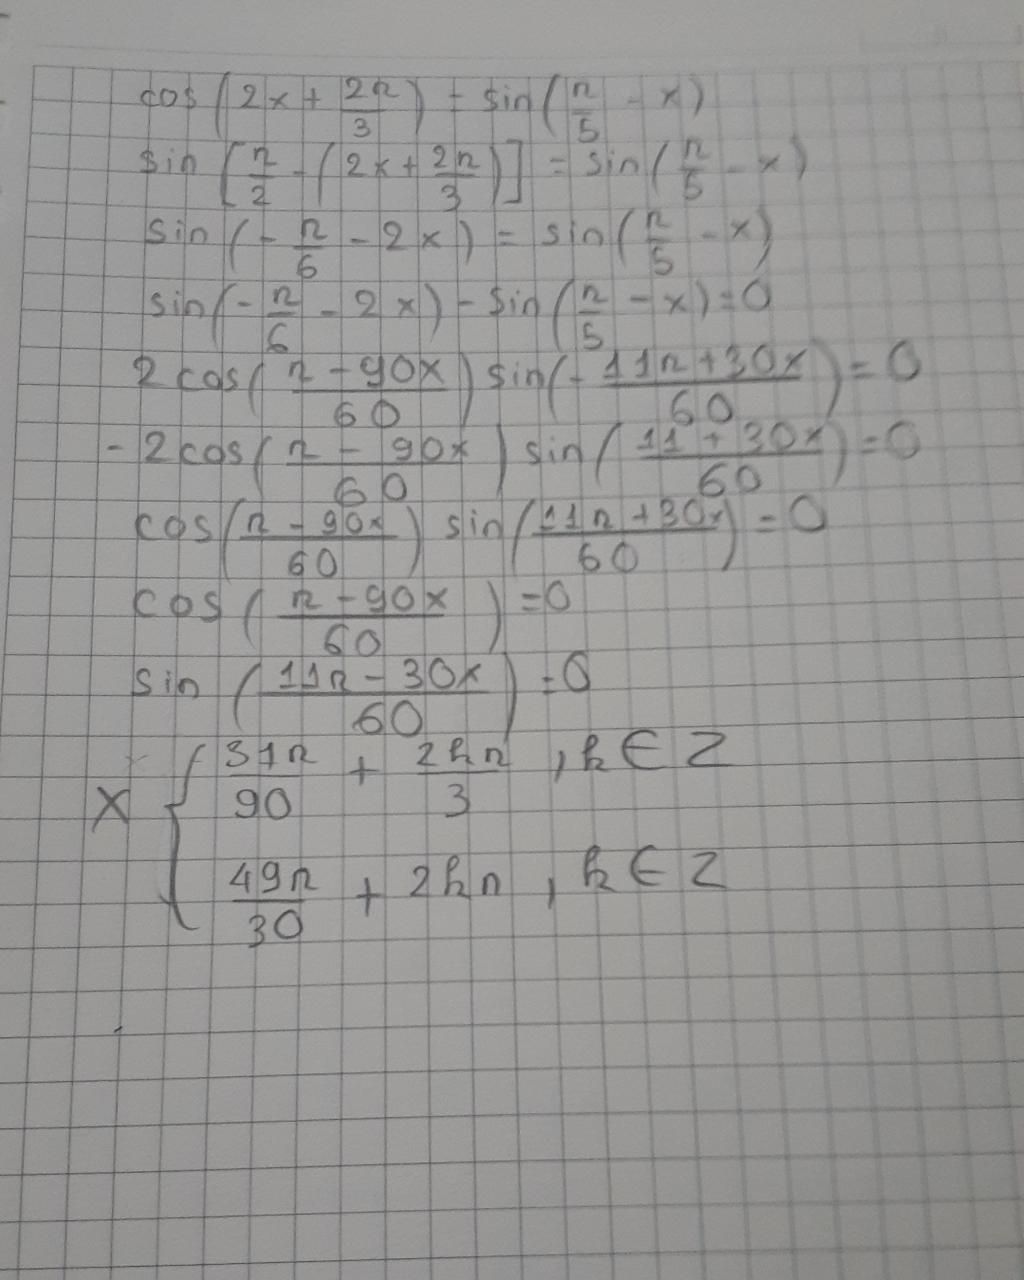 cos(2x + 2π/3) = sin(π/5 - x)
sin[π/2 - (2x + 2π/3)] = sin(π/5 - x)
sin(-π/6 - 2x) = sin(π/5 - x)
sin(-π/6 - 2x) - sin(π/5 - x) = 0
2cos(π - 90x/60) sin(-11π + 30x/60) = 0
-2cos(π - 90x/60) sin(11 + 30x/60) = 0
cos(π - 90x/60) sin(11π + 30x/60) = 0
cos(π - 90x/60) = 0
sin(11π - 30x/60) = 0
x { 31π/90 + 2kπ/3, k ∈ Z
49π/30 + 2kπ, k ∈ Z